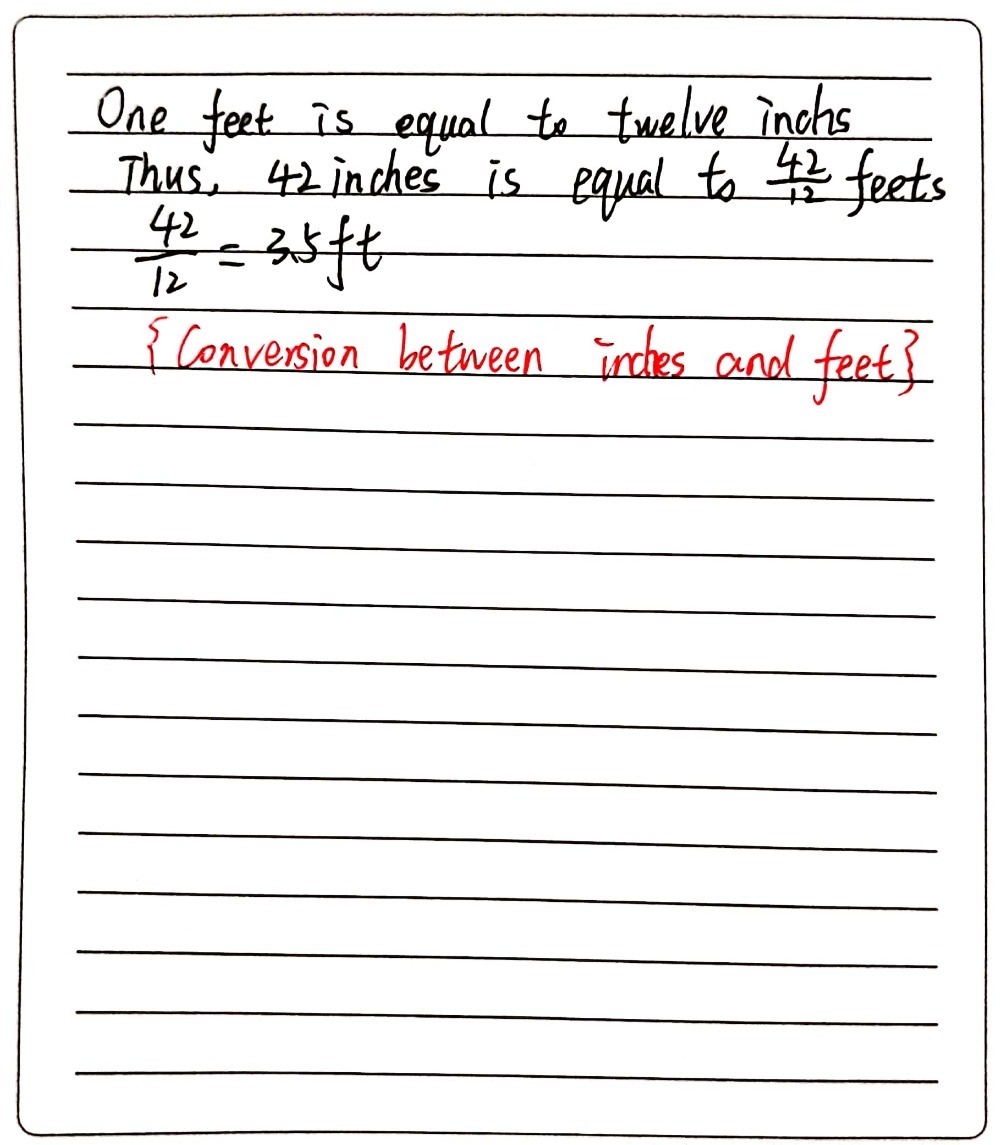 One feet is equal to twelve inchs
Thus, 42 inches is equal to 42/12 feets
42/12 = 3.5 ft
{Conversion between inches and feet}